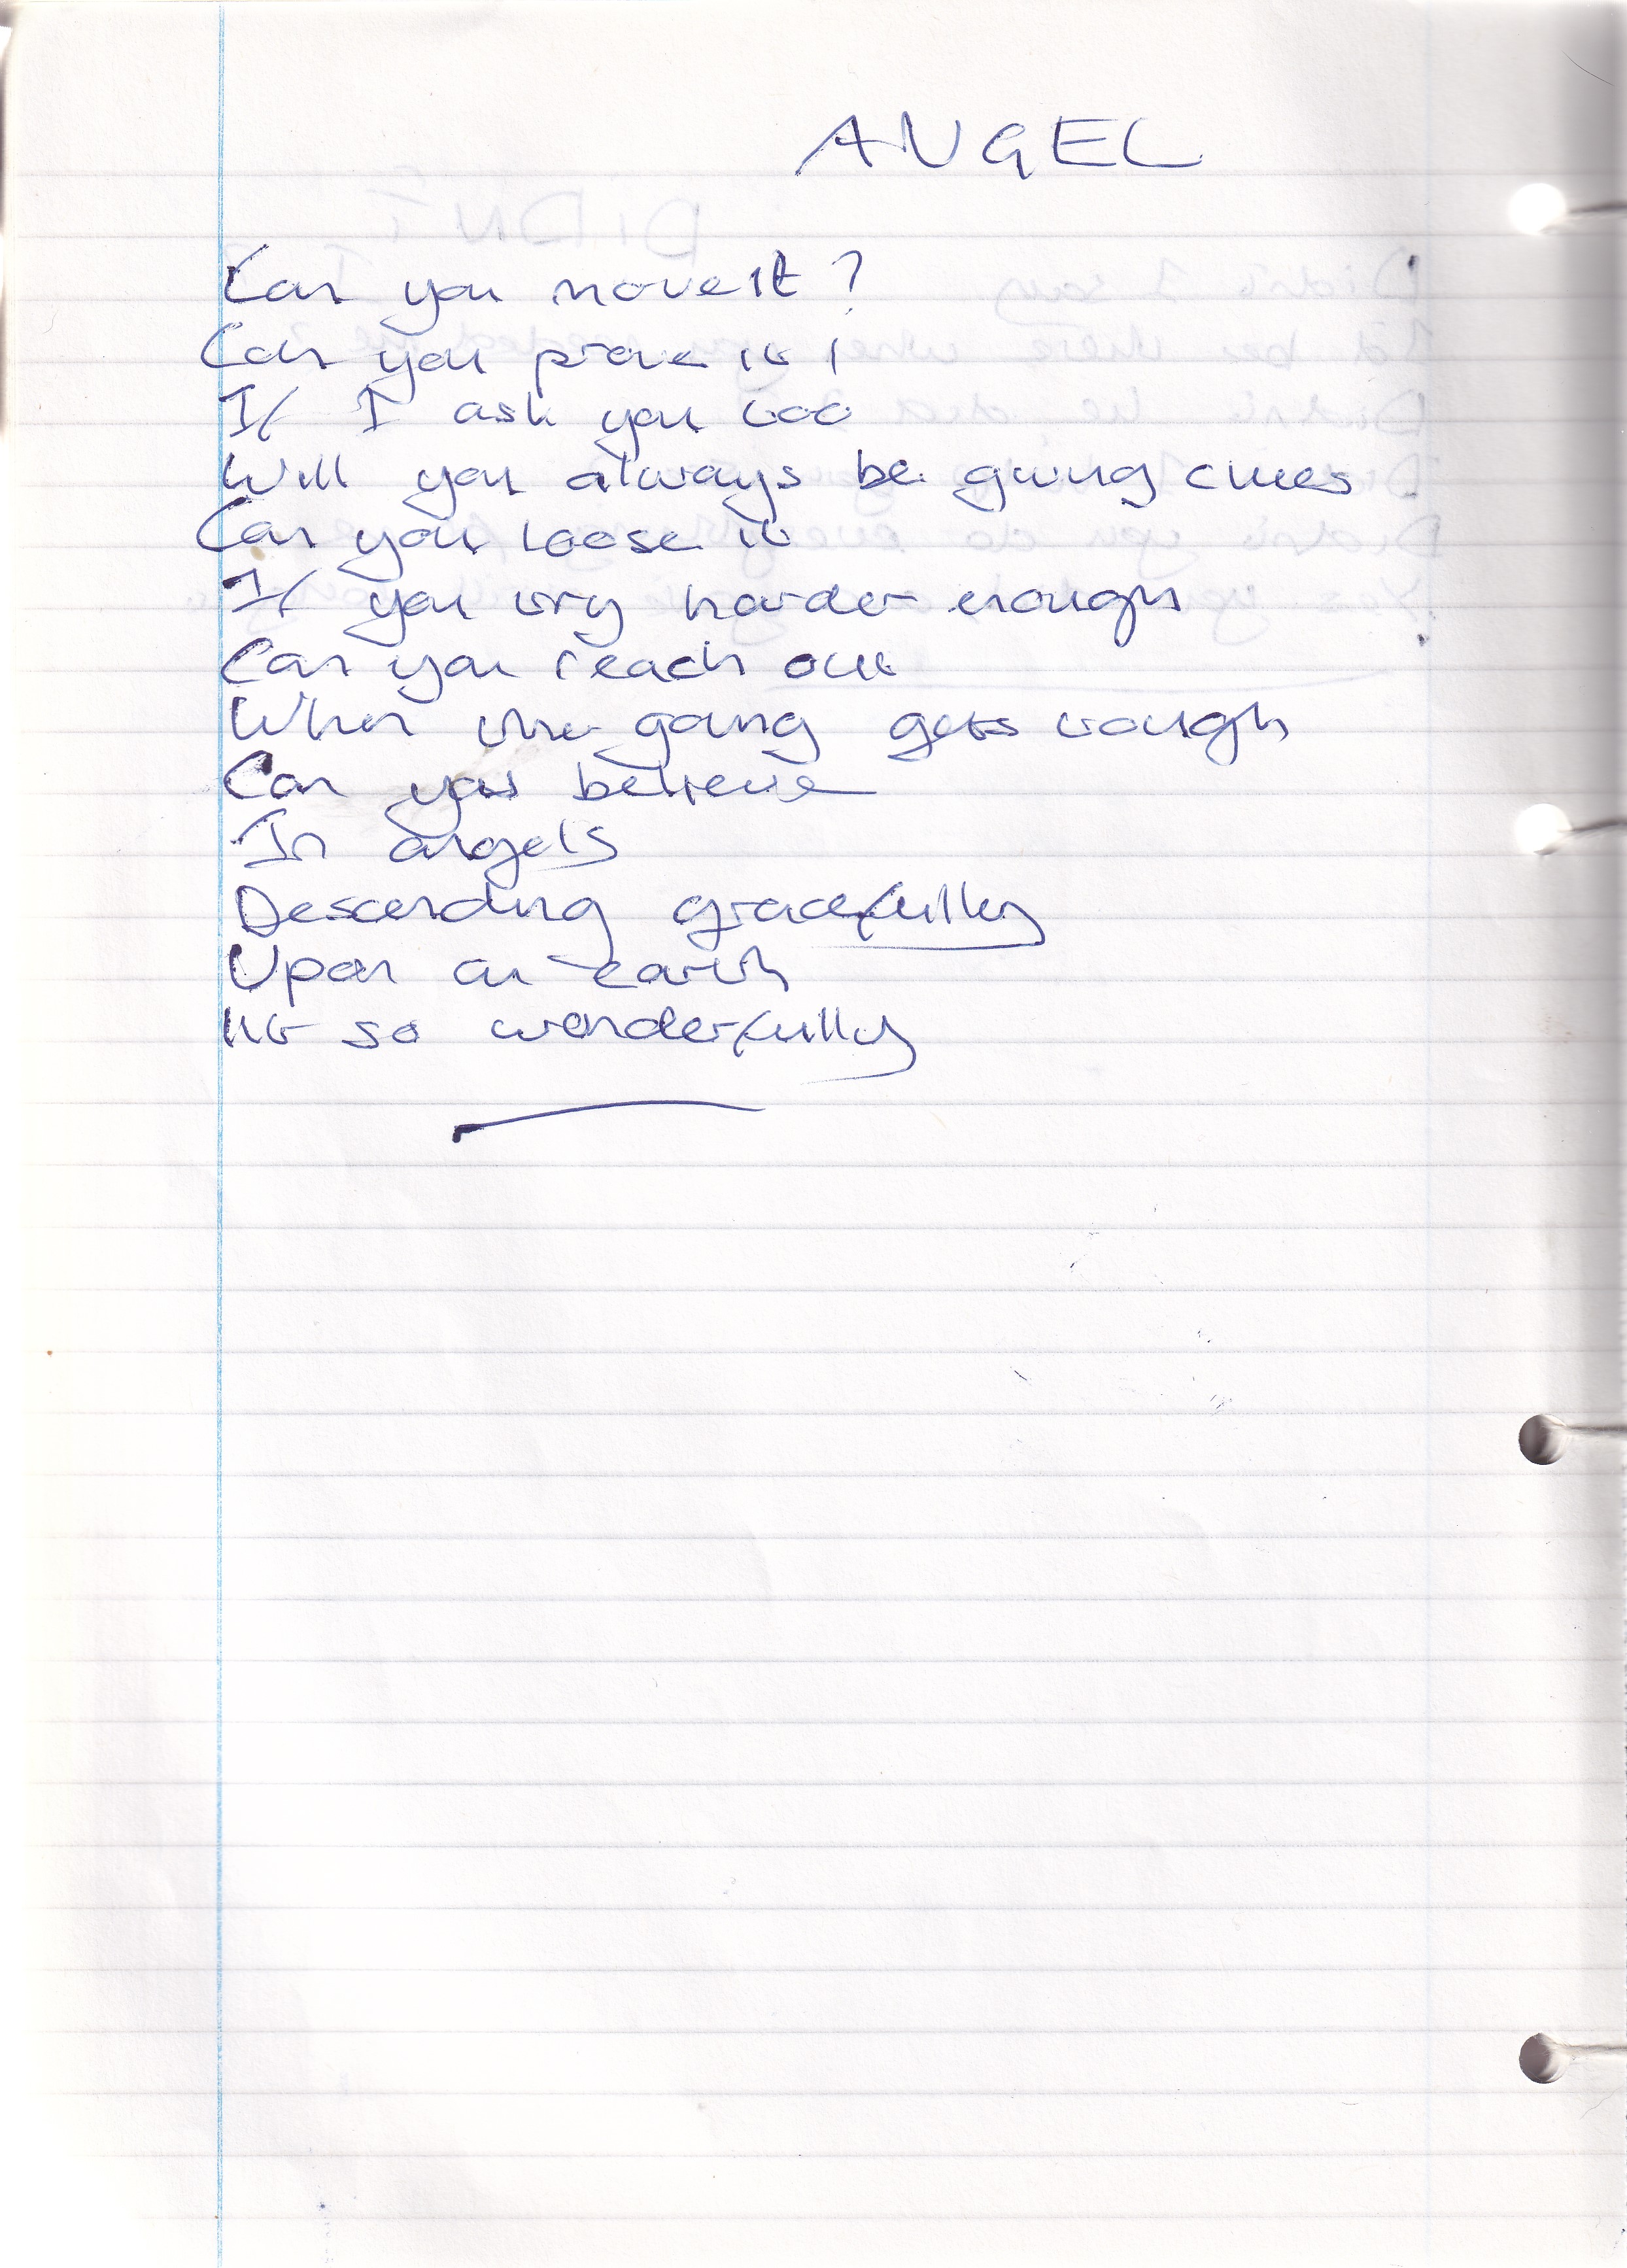 ANGEL
Can you move it ?
Can you prove it !
If I ask you too
Will you always be giving clues
Can you loose it
If you try harder enough
Can you reach out
When the going gets tough
Can you believe
In angels
Descending gracefully
Upon an earth
so wonderfully